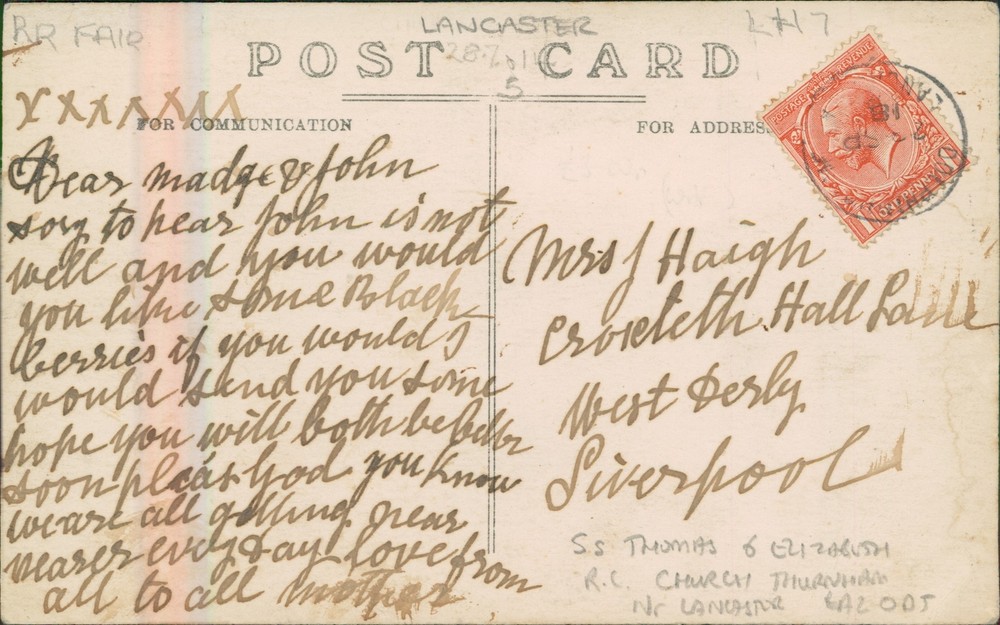 RR FAIR
LANCASTER
LH7
POST CARD
28.7.14
5
x x x x x x x
FOR COMMUNICATION
FOR ADDRESS
POSTAGE REVENUE
ONE PENNY
Dear madge & John
sory to hear John is not
well and you would
you like some Black
berries if you would I
would send you some
hope you will both be better
soon pleas God you know
we are all getting near
nearer evey day love from
all to all mother
Mrs J Haigh
Croxteth Hall Lane
West Derby
Liverpool
SS THOMAS & ELIZABETH
R.C. CHURCH THURNHAM
Nr LANCASTER LA2 0DT